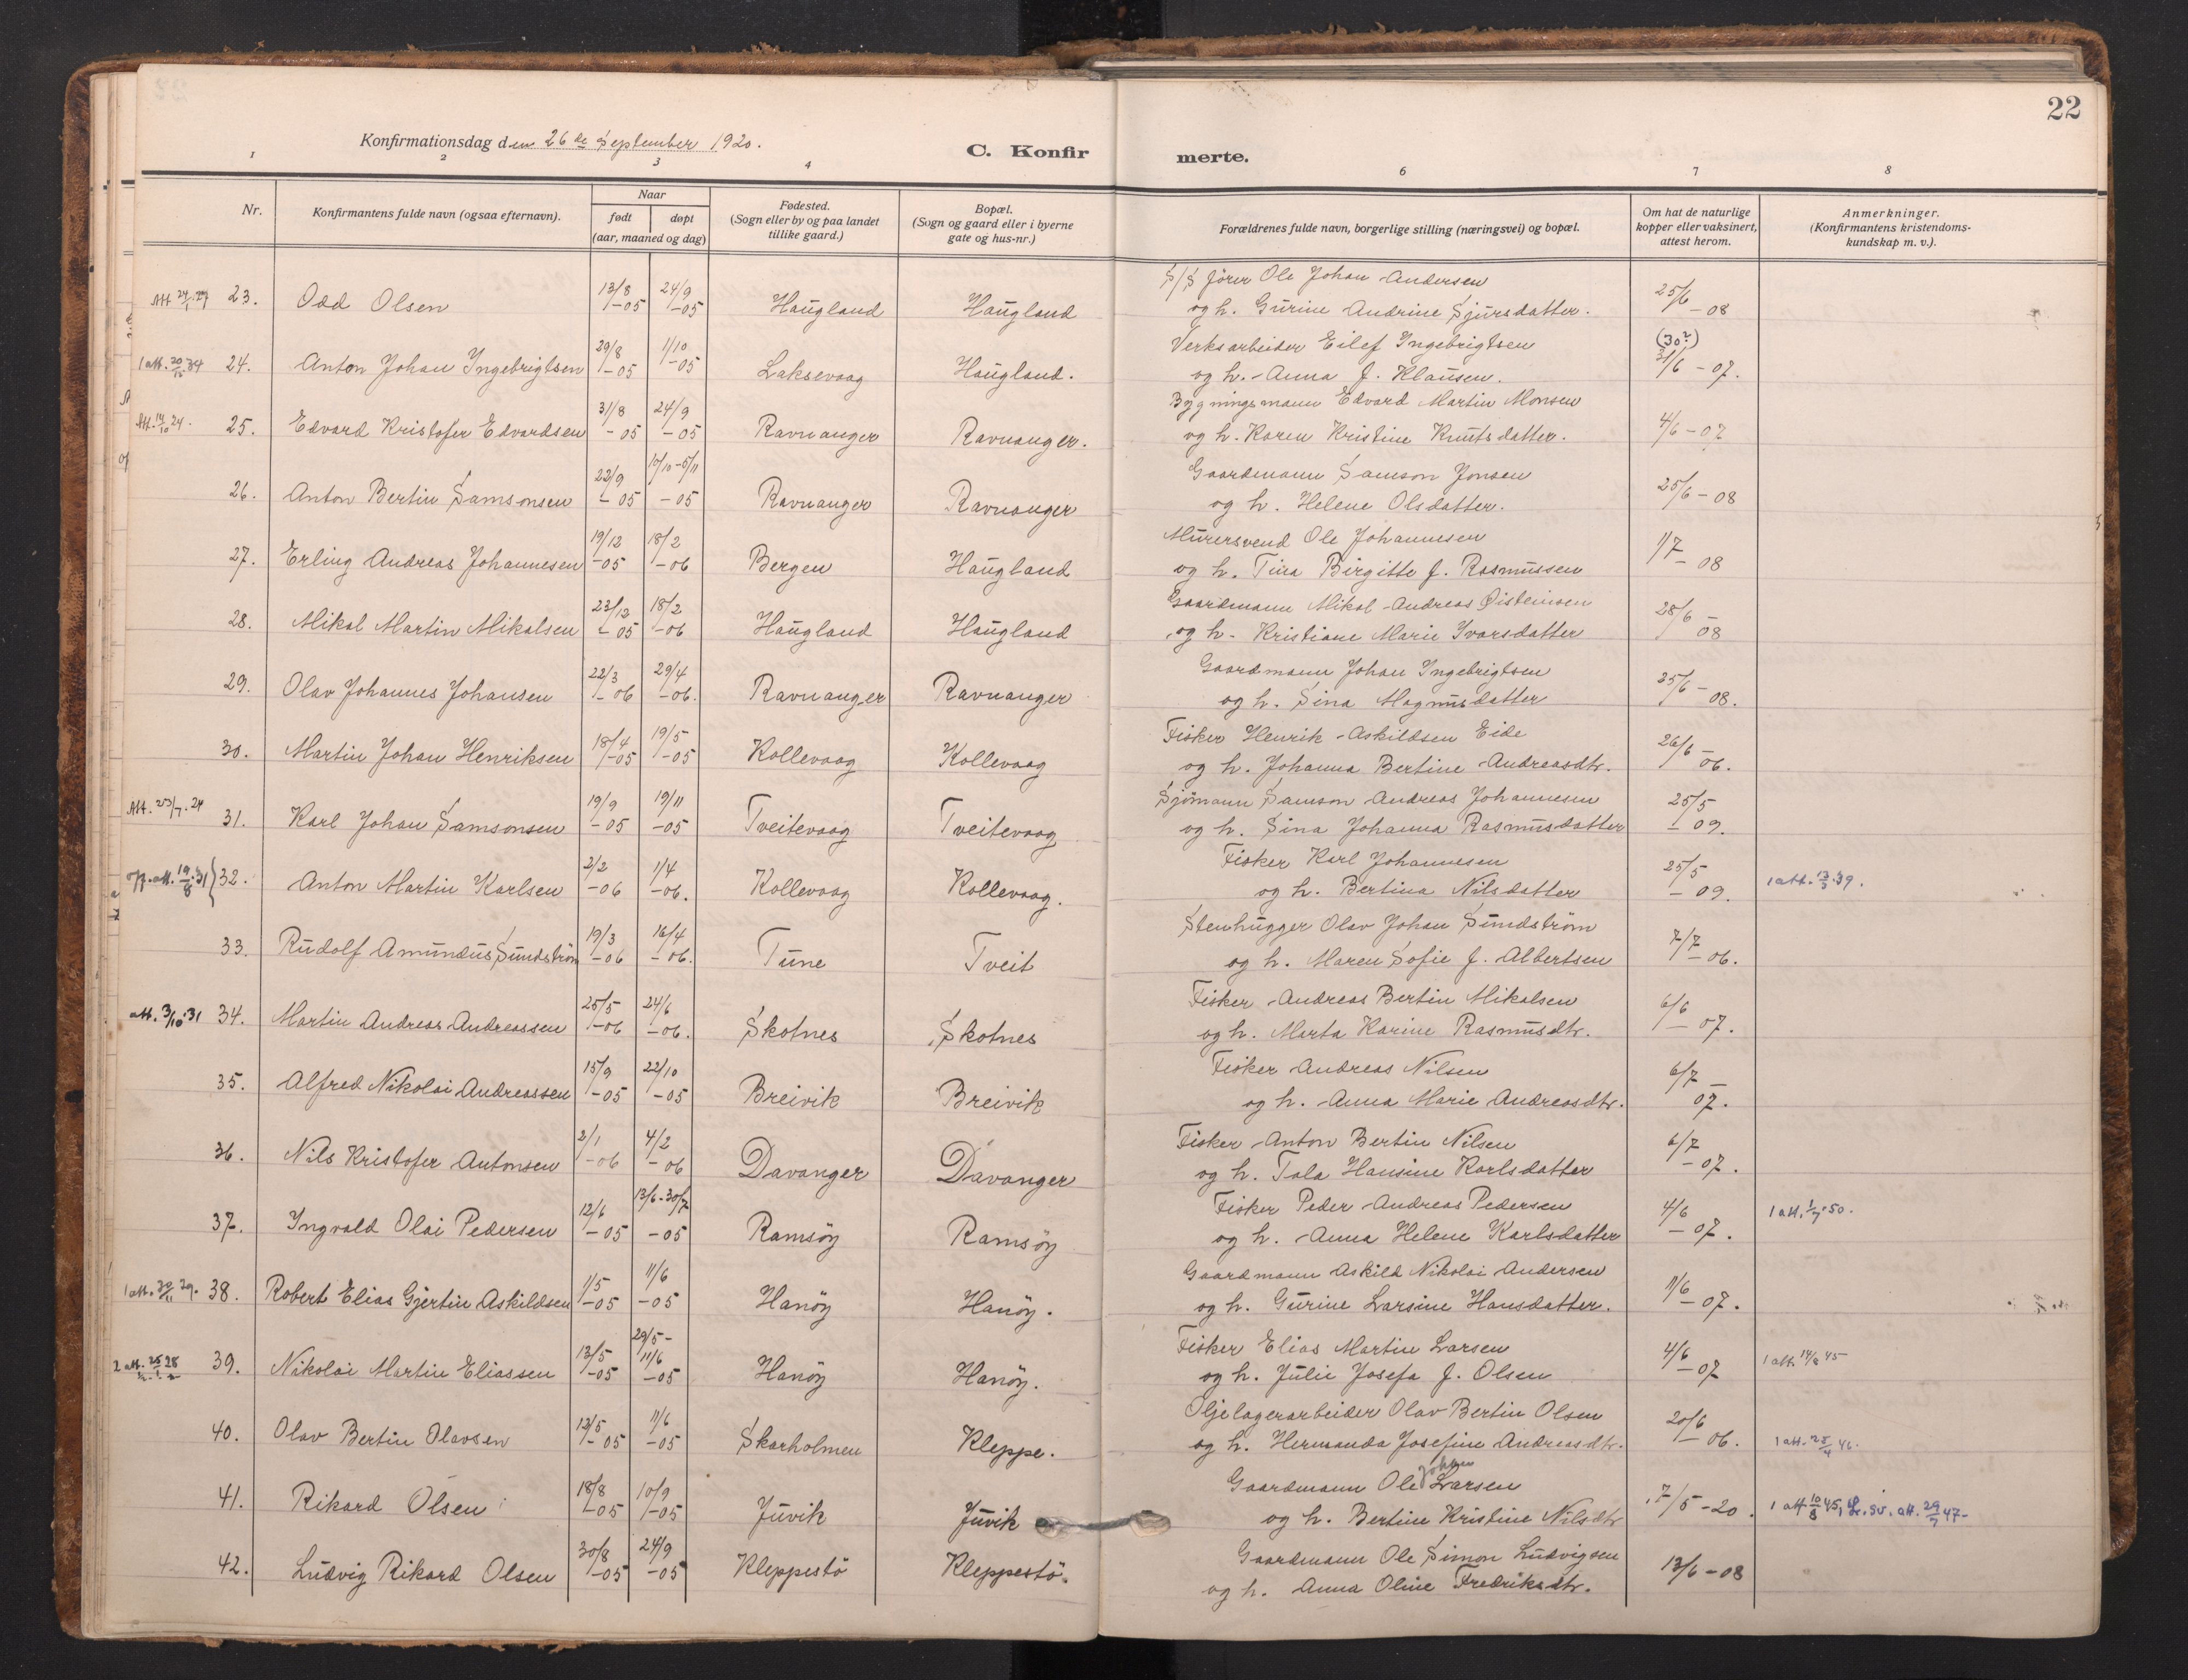 22
Konfirmationsdag den 26de September 1920.
C. Konfirmerte.
1 2 3 4 6 7 8
Nr.
Konfirmantens fulde navn (ogsaa efternavn).
Naar
født døpt
(aar, maaned og dag)
Fødested.
(Sogn eller by og paa landet
tillike gaard.)
Bopæl.
(Sogn og gaard eller i byerne
gate og hus-nr.)
Forældrenes fulde navn, borgerlige stilling (næringsvei) og bopæl.
Om hat de naturlige
kopper eller vaksinert,
attest herom.
Anmerkninger.
(Konfirmantens kristendoms-
kundskap m. v.).
23. Odd Olsen 13/8-05 24/9-05 Haugland Haugland S/S fører Ole Johan Andersen
og h. Gurine Andrine Sjursdatter. 25/6-08
1 att. 24. Anton Johan Ingebrigtsen 29/8-05 1/10-05 Laksevaag Haugland. Verksarbeider Eilef Ingebrigtsen (30?)
og h. Anna f. Klausen. 31/6-07.
Att. 14/10 24. 25. Edvard Kristofer Edvardsen 31/8-05 24/9-05 Ravnanger Ravnanger. Bygningsmann Edvard Martin Monsen
og h. Karen Kristine Knutsdatter. 4/6-07
26. Anton Bertin Samsonsen 22/9-05 10/10-5/11-05 Ravnanger Ravnanger Gaardmann Samson Jonsen
og h. Helene Olsdatter. 25/6-08
27. Erling Andreas Johannesen 19/12-05 18/2-06 Bergen Haugland Murersvend Ole Johannesen
og h. Tina Birgitte f. Rasmussen 1/7-08
28. Mikal Martin Mikalsen 23/12-05 18/2-06 Haugland Haugland Gaardmann Mikal Andreas Øisteinsen
og h. Kristiane Marie Ivarsdatter 28/6-08
29. Olav Johannes Johansen 22/3-06 29/4-06. Ravnanger Ravnanger Gaardmann Johan Ingebrigtsen
og h. Sina Magnusdatter 25/6-08.
30. Martin Johan Henriksen 18/4-05 19/5-05 Kollevaag Kollevaag Fisker Henrik Askildsen Eide
og h. Johanna Bertine Andreasdtr. 26/6-06.
Att. 23/7.24 31. Karl Johan Samsonsen 19/9-05 19/11-05 Tveitevaag Tveitevaag Sjømann Samson Andreas Johannesen
og h. Sina Johanna Rasmusdatter 25/5-09.
att. 19/8.31 32. Anton Martin Karlsen 2/2-06 1/4-06. Kollevaag Kollevaag. Fisker Karl Johannesen
og h. Bertina Nilsdatter 25/5-09. 1 att. 13/3.39.
33. Rudolf Amundus Sundström 19/3-06 16/4-06. Tune Tveit Stenhugger Olav Johan Sundström
og h. Maren Sofie f. Albertsen 7/7-06.
att. 3/10.31 34. Martin Andreas Andreassen 25/5-06 24/6-06. Skotnes Skotnes Fisker Andreas Bertin Mikalsen
og h. Marta Karine Rasmusdtr. 6/6-07.
35. Alfred Nikolai Andreassen 15/9-05 22/10-05 Breivik Breivik Fisker Andreas Nilsen
og h. Anna Marie Andreasdtr. 6/7-07.
36. Nils Kristofer Antonsen 2/1-06 4/2-06 Davanger Davanger Fisker Anton Bertin Nilsen
og h. Tala Hansine Karlsdatter 6/7-07.
37. Ingvald Olai Pedersen 12/6-05 13/6-30/7-05 Ramsöy Ramsöy Fisker Peder Andreas Pedersen
og h. Anna Helene Karlsdatter 4/6-07. 1 att. 1/7.50.
1 att. 29. 38. Robert Elias Gjertin Askildsen 1/5-05 11/6-05 Hanöy Hanöy. Gaardmann Askild Nikolai Andersen
og h. Gurine Larsine Hansdatter. 11/6-07.
2 att. 28 39. Nikolai Martin Eliassen 13/5-05 29/5-11/6-05 Hanöy Hanöy. Fisker Elias Martin Larsen
og h. Julie Josefa f. Olsen 4/6-07 1 att. 14/8 45
40. Olav Bertin Olavsen 12/5-05 11/6-05 Skarholmen Kleppe. Oljelagerarbeider Olav Bertin Olsen
og h. Hermanda Josefine Andreasdtr. 20/6-06. 1 att. 25/4 46.
41. Rikard Olsen 18/8-05 10/9-05 Juvik Juvik Gaardmann Ole Johan Larsen
og h. Bertine Kristine Nilsdtr 7/5-20. 1 att 10/8 45, att. 29/7 47-
42. Ludvig Rikard Olsen 30/8-05 24/9-05 Kleppestö Kleppestö. Gaardmann Ole Simon Ludvigsen
og h. Anna Oline Fredriksdtr. 13/6-08